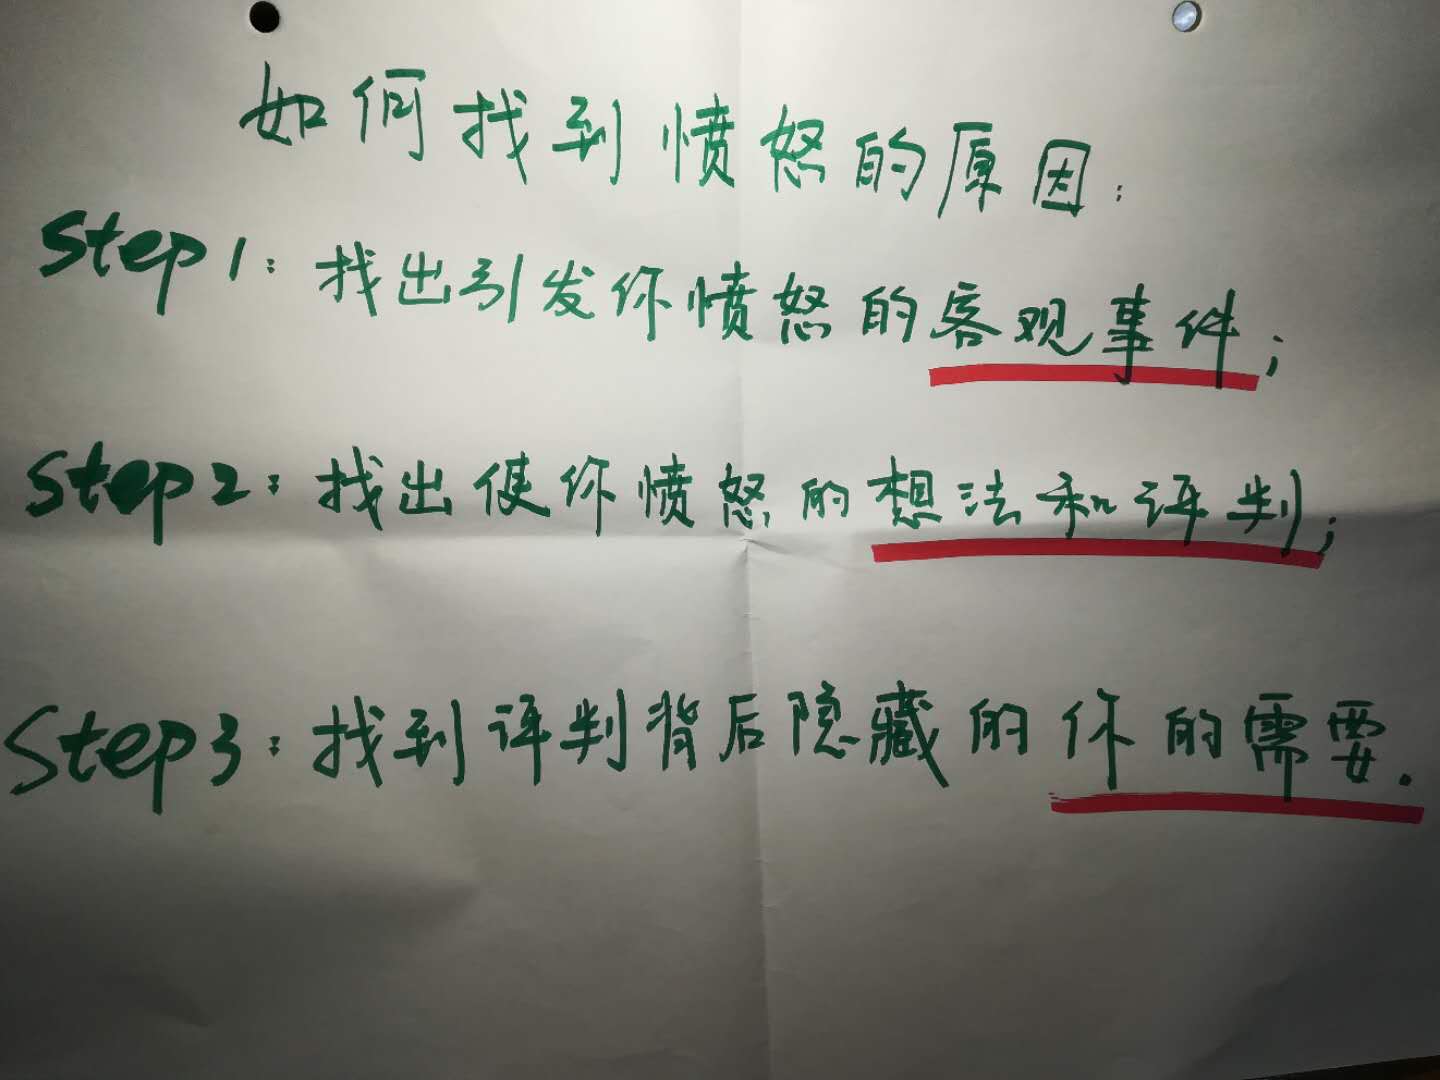 如何找到愤怒的原因：
Step1：找出引发你愤怒的客观事件；
Step2：找出使你愤怒的想法和评判；
Step3：找到评判背后隐藏的你的需要.